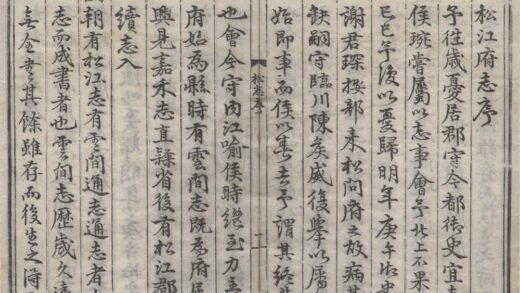 松江府志序
予往歲憂居郡守今都御史宜
侯琬嘗屬以志事會予北上不果
己巳予復以憂歸明年庚午御史
謝君琛按部来松問府之故病其
缺嗣守臨川陳矦威後舉以屬
始即事而侯以春去予謂其終
也會今守内江喻侯時继至力主
府始為縣時有雲間志既為府
興見嘉禾志直隸省後有松江郡
續志入
國朝有松江志有雲間通志通志者
志而成書者也雲間志歷歲久
無全書其餘雖存而後生之得
松志序